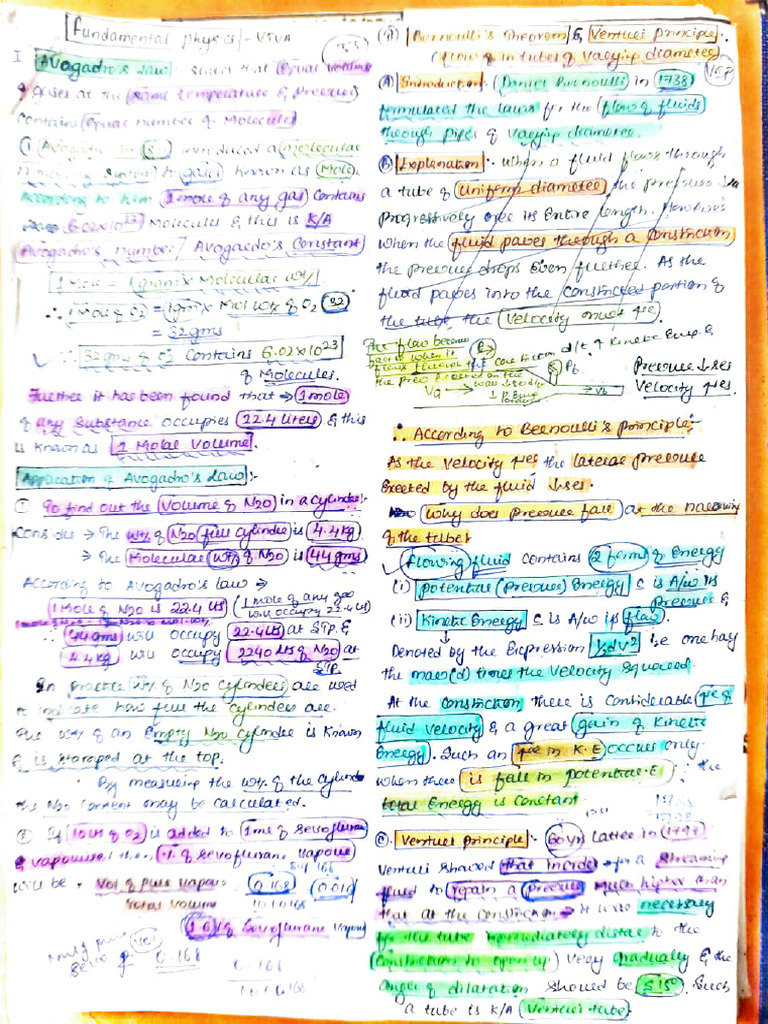 Fundamental physics - VIVA
I Avogadro's Law: states that Equal volumes
of gases at the same temperature & pressure
contains Equal number of Molecules
① Avogadro in introduced a molecular
to gases known as Mole.
According to him 1 mole of any gas contains
6.02x10^23 Molecules & this is K/A
Avogadro's number / Avogadro's Constant
1 Mole = 1gm x Molecular wt
∴ 1 Mole of O2 = 1gm x Mol wt of O2 32
= 32gms
∴ 32gms of O2 contains 6.02x10^23
of Molecules.
Further it has been found that → 1 mole
of any substance occupies 22.4 liters & this
is known as 1 Molar Volume.
Application of Avogadro's Law:-
① To find out the volume of N2O in a cylinder:-
Consider → The wt of N2O full cylinder is 4.4kg
→ The Molecular wt of N2O is 44gms
According to Avogadro's law →
1 Mole of N2O is 22.4 lts (1 mole of any gas
will occupy 22.4 lts)
∴ 44gms will occupy 22.4 lts at STP &
4.4kg will occupy 2240 lts of N2O at
STP.
In practice wt of N2O cylinders are used
to indicate how full the cylinders are.
The wt of an Empty N2O cylinder is known
& is stamped at the top.
By measuring the wt of the cylinder
the N2O content may be calculated.
② If 10 lt of O2 is added to 1ml of sevoflurane
& vapourised then % of sevoflurane vapour
will be = Vol of pure vapour = 0.168 0.016
Total Volume 10.168
1.6% of Sevoflurane vapour
0.168
0.168
10.168
Bernoulli's Theorem & Venturi principle:-
(flow of in tubes of varying diameter)
Ⓐ Introduction: Daniel Bernoulli in 1738
formulated the laws for the flow of fluids
through pipes of varying diameter.
Ⓑ Explanation:- when a fluid flows through
a tube of Uniform diameter, the pressure ↓ses
progressively over its Entire length. However
when the fluid passes through a constriction
the pressure drops Even further. As the
fluid passes into the constricted portion of
the tube the velocity must ↑se
The flow
the constriction d/t ↑ Kinetic Energy &
Pa Pb
Va Vb
Pressure ↓ses
Velocity ↑ses.
∴ According to Bernoulli's principle:-
As the velocity ↑ses the lateral pressure
Exerted by the fluid ↓ses.
Why does pressure fall at the narrowing
of the tube:
Flowing fluid contains 2 forms of Energy
(i) potential (Pressure) Energy c is A/w its
Pressure &
(ii) Kinetic Energy c is A/w its flow.
Denoted by the Expression ½dv² ie one half
the mass(d) times the velocity squared
At the constriction there is considerable ↑se of
fluid velocity & a great gain of kinetic
Energy. Such an ↑se in K.E occurs only
when there is fall in potential E ∵ the
total Energy is constant
Ⓒ. Venturi principle:- 60yrs latter in 1797
Venturi showed that inorder for a streaming
fluid to regain a pressure much higher than
that at the constriction → it was necessary
for the tube immediately distal to the
constriction to open up very gradually & the
angle of dilatation should be ≤15°. Such
a tube is K/A Venturi tube